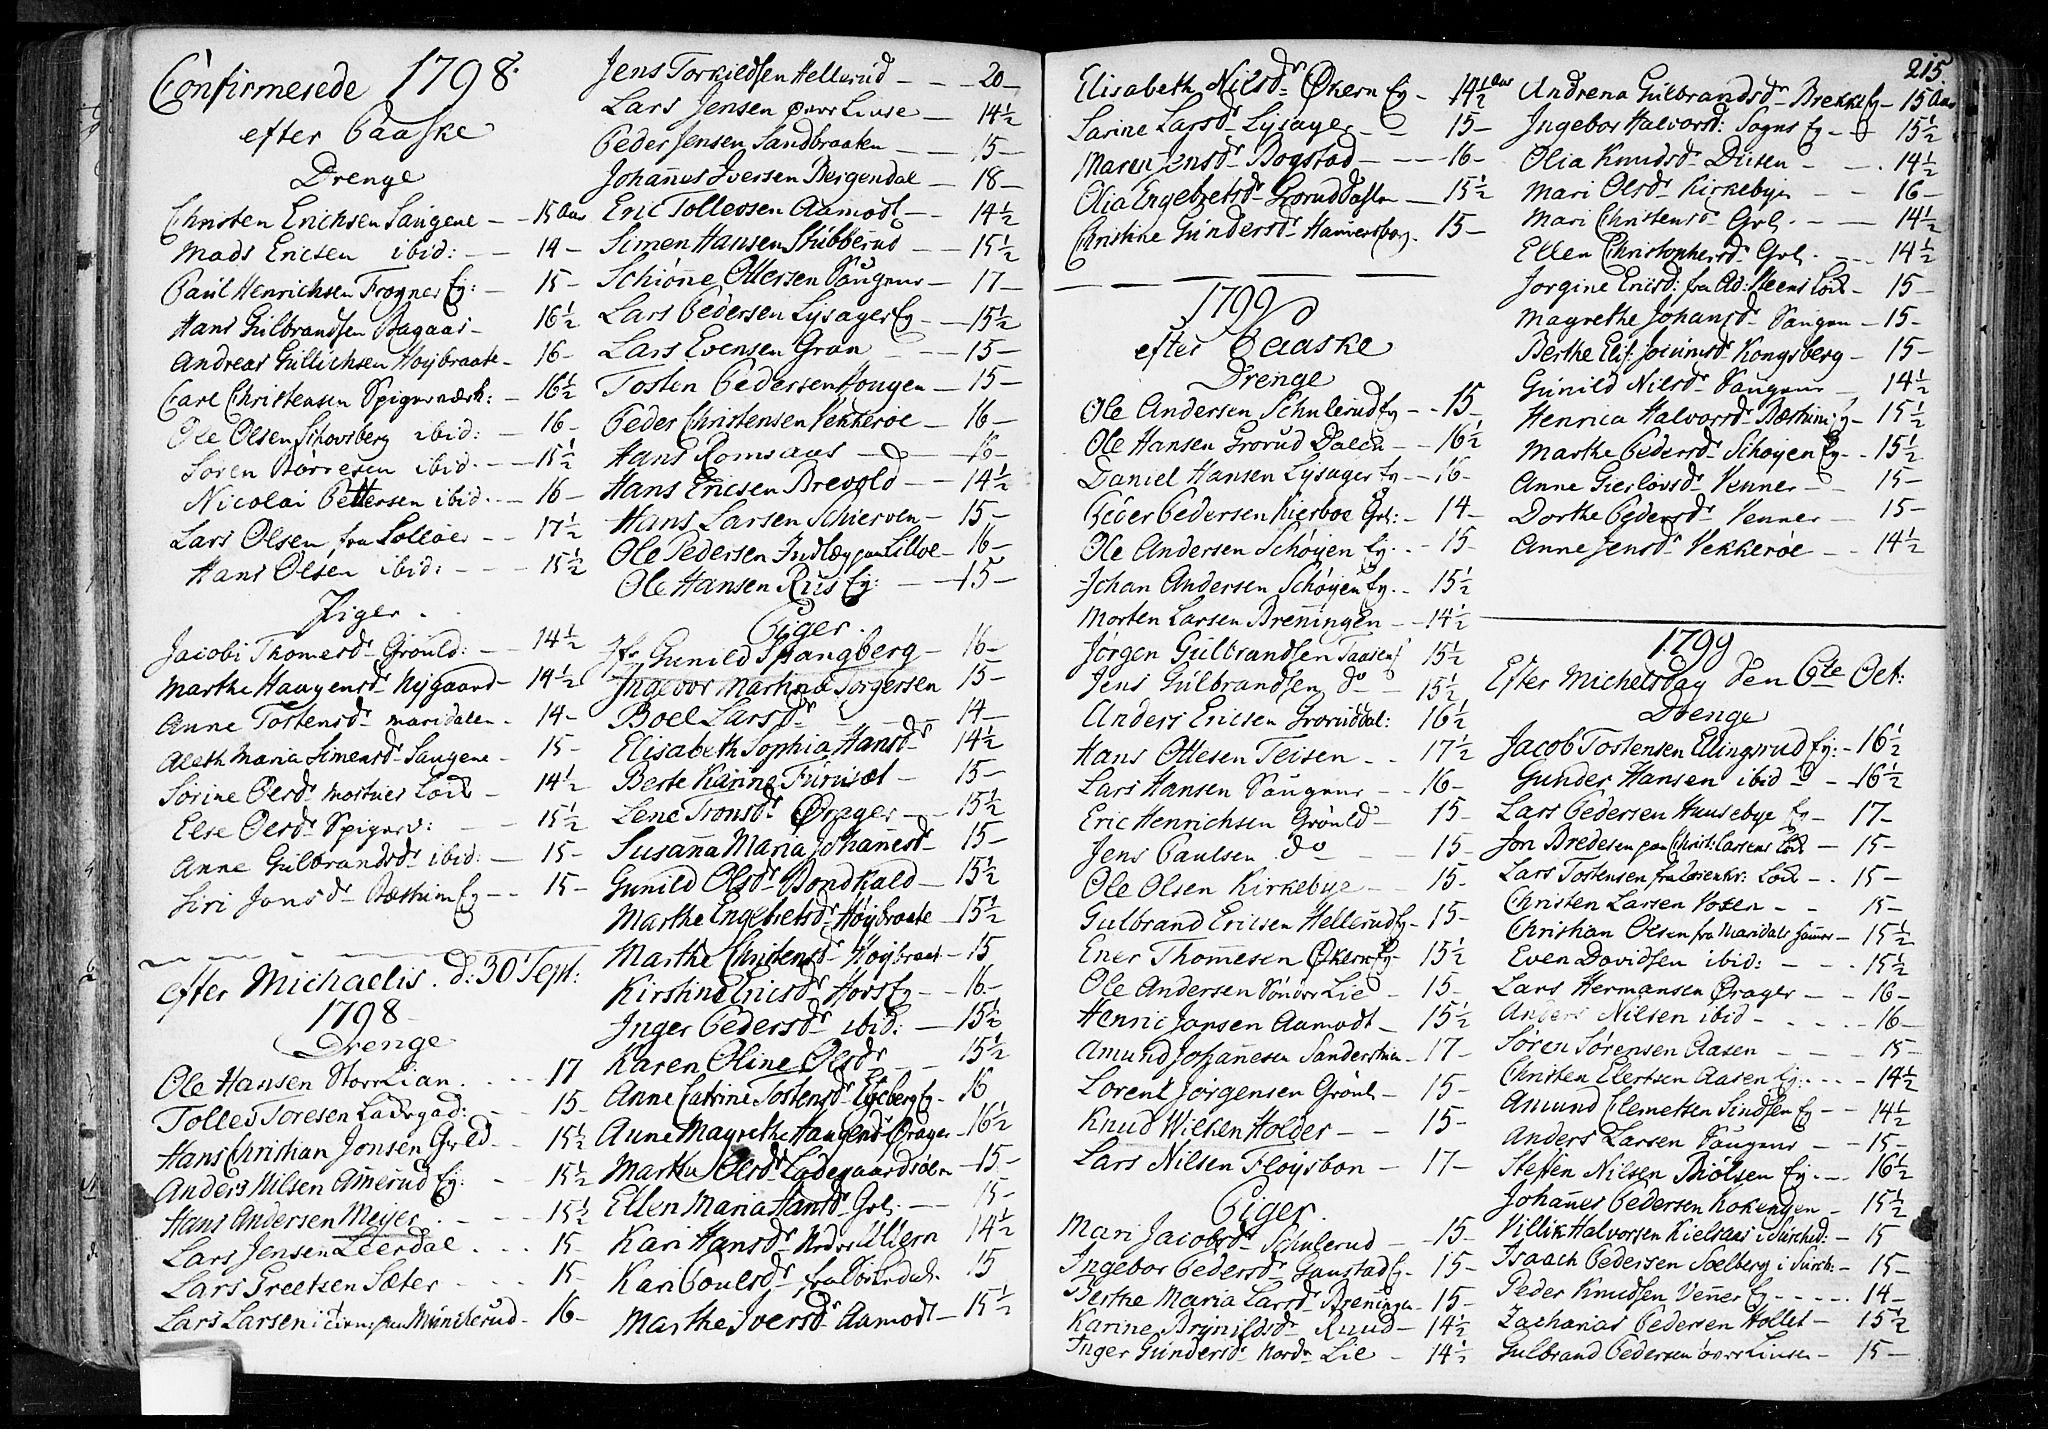 Confirmerede 1798.
efter Paaske
Drenge
Christen Erichsen Saugene - - 15 Aar
Mads Ericsen ibid: - - 14 -
Paul Henrichsen Frogner Eg: - 15 -
Hans Gulbrandsen Bagaas - 16½
Andreas Gullichsen Høybraate - 16 -
Carl Christensen Spigerværk: - 16½
Ole Olsen Schovsberg ibid: - 16 -
Søren Børresen ibid. - - 15½
Nicolai Pettersen ibid. - - 16 -
Lars Olsen fra Solløes - - 17½
Hans Olsen ibid: - - - 15½
Piger.
Jacobi Thomesdr Grøuld: - - 14½
Marthe Haagensdr Nygaard - 14½
Anne Tostensdr Maridalen - 14 -
Aleth Maria Simensdr Saugene - 15 -
Sørine Olsdr Løck - 14½
Else Olsdr Spigerv: - - 15½
Anne Gulbrandsdr ibid: - 15 -
Siri Jonsdr Bæshim Eg - - 15 -
efter Michaelis. d: 30 Sept:
1798
Drenge
Ole Hansen Storr Lian. - - - 17
Tolles Toresen Ladegad: - - 15 -
Hans Christian Jonsen Grøld - - 15½
Anders Nilsen Amerud Eg: - - 15½
Hans Andersen Meyer. - - - 15½
Lars Jensen Leerdal - - - 15 -
Lars Greetsen Sæter - - - 15 -
Lars Larsen i tien: paa Munkerud - 16 -
Jens Torkildsen Hellerud - - - 20 -
Lars Jensen Øvre Linse - 14½
Peder Jensen Sandbraaten - - 15 -
Johannes Iversen Bergendal - 18 -
Eric Tollevsen Aamodt - - 14½
Simen Hansen Stubberud - - 15½
Schiønne Ottersen Saugene - 17 -
Lars Pedersen Lysager Eg - - 15½
Lars Evensen Gran - - 15 -
Tosten Pedersen Hougen - 15 -
Peder Christensen Vekkerøe - 16 -
Hans Romsaas - - 16 -
Hans Ericsen Brevold - - 14½
Hans Larsen Schierven - 15 -
Ole Pedersen Indlæg paa Lilløe - 16 -
Ole Hansen Ruus Eg: - - 15 -
Piger.
Jfr Gunild Spangberg - 16 -
Ingebor Martina Torgersen 15 -
Boel Larsdr - - 14 -
Elisabeth Sophia Hansdr 14½
Berte Karine Furusæt - 15 -
Lene Tronsdr Ørager - - 15½
Susanna Maria Johannesdr - 15 -
Gunild Olsdr Bondkald - 15½
Marthe Engebretsdr Høybraate - 15½
Marthe Christensdr Høybraat - 15
Kirstine Ericsdr Hovs Eg - - 16 -
Inger Pedersdr ibid: - 15½
Karen Oline Olsdr - - 15½
Anne Catrine Tostensdr Eg - 16
Anne Magrethe Haagensdr Ørager - 16½
Marthe Olsdr Ladegaardsøen - 15 -
Ellen Maria Hansdr Grl. - - 15 -
Kari Hansdr Nordre Ullern 14½
Kari Poulsdr fra Sørkedal. 15
Marthe Iversdr Aamodt - 15½
215.
Elisabeth Nilsdr Økern Eg - 14½ Aar
Sarine Larsdr Lysager - - 15 -
Maren Jensdr Bogstad - - - 16 -
Olia Engebretsdr Grorud Dahlen - 15½
Christine Gundersdr Hammersborg. 15 -
1799
efter Paaske
Drenge
Ole Andersen Schulerud Eg - - 15 -
Ole Hansen Grorud Dalen - - 16½
Daniel Hansen Lysager Eg - - 16 -
Peder Pedersen Kierboe Grl: - 14 -
Ole Andersen Schøyen Eg. - - 15 -
Johan Andersen Schøyen Eg. - 15½
Morten Larsen Brenningen - - 14½
Jørgen Gulbrandsen Taasen 15½
Jens Gulbrandsen do - 15½
Anders Ericsen Groruddal: 16½
Hans Ottesen Teisen - - 17½
Lars Hansen Saugene - - 16 -
Eric Henrichsen Grøuld - 15 -
Jens Paulsen do - - 15 -
Ole Olsen Kirkebye - - 15 -
Gulbrand Ericsen Hellerud Eg - 15 -
Ener Thommesen Økern Eg - 15½
Ole Andersen Søndre Lie - 15 -
Henric Jansen Aamodt - 15½
Amund Johannesen Sanderstuen - 17 -
Lorent Jørgensen Grønl - 15 -
Knud Wilken Holder - - 15 -
Lars Nilsen Fløysbon - 17 -
Piger.
Mari Jacobsdr Schulerud - - 15 -
Ingebor Pedersdr Gaustad Eg - 15 -
Berthe Maria Larsdr Breningen - 15 -
Karine Brynildsdr Ruud - 14½
Inger Gundersdr Nordr Lie - 14½
Andrena Gulbrandsdr Brekke Eg - 15 Aar
Ingebor Halvorsd: Sogns Eg - - 15½
Olia Knudsdr Disen - - . 14½
Mari Olsdr Kirkebye - - 16 -
Mari Christensdr Grl. - - 14½
Ellen Christophersdr Grl. - - - 14½
Jorgine Ericsd: fra Ad: Steens Løck - 15 -
Magrethe Johansdr Saugen - 15 -
Berthe Elis: Joeimsdr Kongsberg - 15 -
Gunild Nilsdr Saugene - 14½
Henrica Halvorsdr Bæshim Eg - 15½
Marthe Pedersdr Schøyen Eg - . 15½
Anne Gierløvsdr Venner - 15 -
Dorthe Pedersdr Venner - 15 -
Anne Jensdr Vekkerøe - - 14½
1799
Efter Michelsdag den 6te Oct:
Drenge
Jacob Tostensen Ellingsrud Eg: - 16½
Gunder Hansen ibid - - 16½
Lars Pedersen Huusebye Eg - 17 -
Jon Bredesen paa Christ: Larsens Løck - 15 -
Lars Tostensen fra Løck - . 15 -
Christen Larsen Voxen - - 15 -
Christian Olsen fra Maridals Hammer - 15½
Even Davidsen ibid: - - - . 15½
Lars Hermansen Ørager - - 16 -
Anders Nilsen ibid - - - - 16 -
Søren Sørensen Aasen - - 15 -
Christen Elertsen Aasen Eg: - - - 14½
Amund Clemetsen Sindsen Eg - - 14½
Anders Larsen Saugene - - 15 -
Steffen Nilsen Biølsen Eg. - - 16½
Johannes Pedersen Kokengen - 15½
Villik Halvorsen Kielsaas i Sørched: - 15
Isaach Pedersen Soelberg i Sørch: - 15 -
Peder Knudsen Venner Eg - - - - 14 -
Zacharias Pedersen Hollet - 15½
Gulbrand Pedersen øvre Linsen - 15 -